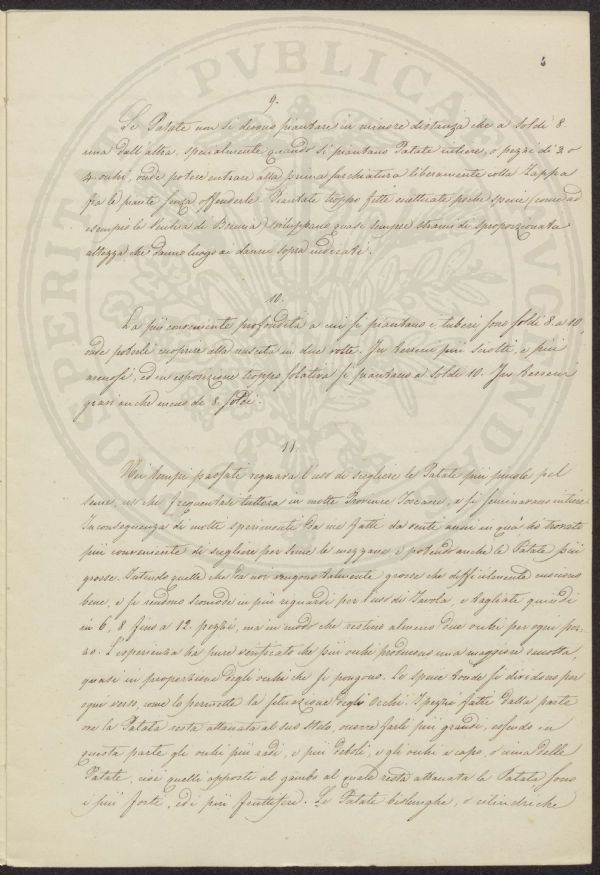 5
9.
Le Patate non si devono piantare in minore distanza che a Soldi 8
una dall'altra, specialmente quando si piantano Patate intiere, o pezzi di 3 o
4 occhi, onde potere entrare alla prima sarchiatura liberamente colla Zappa
fra le piante senza offenderle. Piantate troppo fitte eccettuate poche specie (come ad
esempio la Precoce di Brunia) sviluppano quasi sempre strami di sproporzionata
altezza che danno luogo ai danni sopra indicati.
10.
La più conveniente profondità a cui si piantano i tuberi sono soldi 8. a 10,
onde poterli ricoprire alla nascita in due volte. In terreni più sciolti, e più
arenosi, ed in esposizione troppo solativa si piantano a Soldi 10. In terreni
grassi anche meno di 8 soldi.
11.
Nei tempi passati regnava l'uso di scegliere le Patate più piccole pel
seme, uso che frequentasi tuttora in molte Provincie Toscane, e si seminavano intiere.
In conseguenza di molti sperimenti da me fatti da venti anni in quà ho trovato
più conveniente di scegliere per seme le mezzane e potendo anche le Patate più
grosse. Intendo quelle che da noi vengono talmente grosse che difficilmente cuociono
bene, e si rendono scomode in più riguardi per l'uso di Tavola, e tagliate quindi
in 6, 8 fino a 12. pezzi, ma in modo che restino almeno due occhi per ogni pez-
zo. L'esperienza ha pure verificato che più occhi producono una maggiore raccolta,
quasi in proporzione degli occhi che si pongono. Le specie tonde si dividono per
ogni verso, come lo permette la situazione degli Occhi. I pezzi fatti dalla parte
ove la Patata resta attaccata al suo Stelo, occorre farli più grandi, essendo in
questa parte gli occhi più radi, e più deboli, e gli occhi a capo, o cima delle
Patate, cioè quelli opposti al gambo al quale resta attaccata la Patata, sono
i più forti, ed i più fruttiferi. Le Patate bislunghe, o cilindriche
PROSPERITATI PVBLICAE AVGENDAE